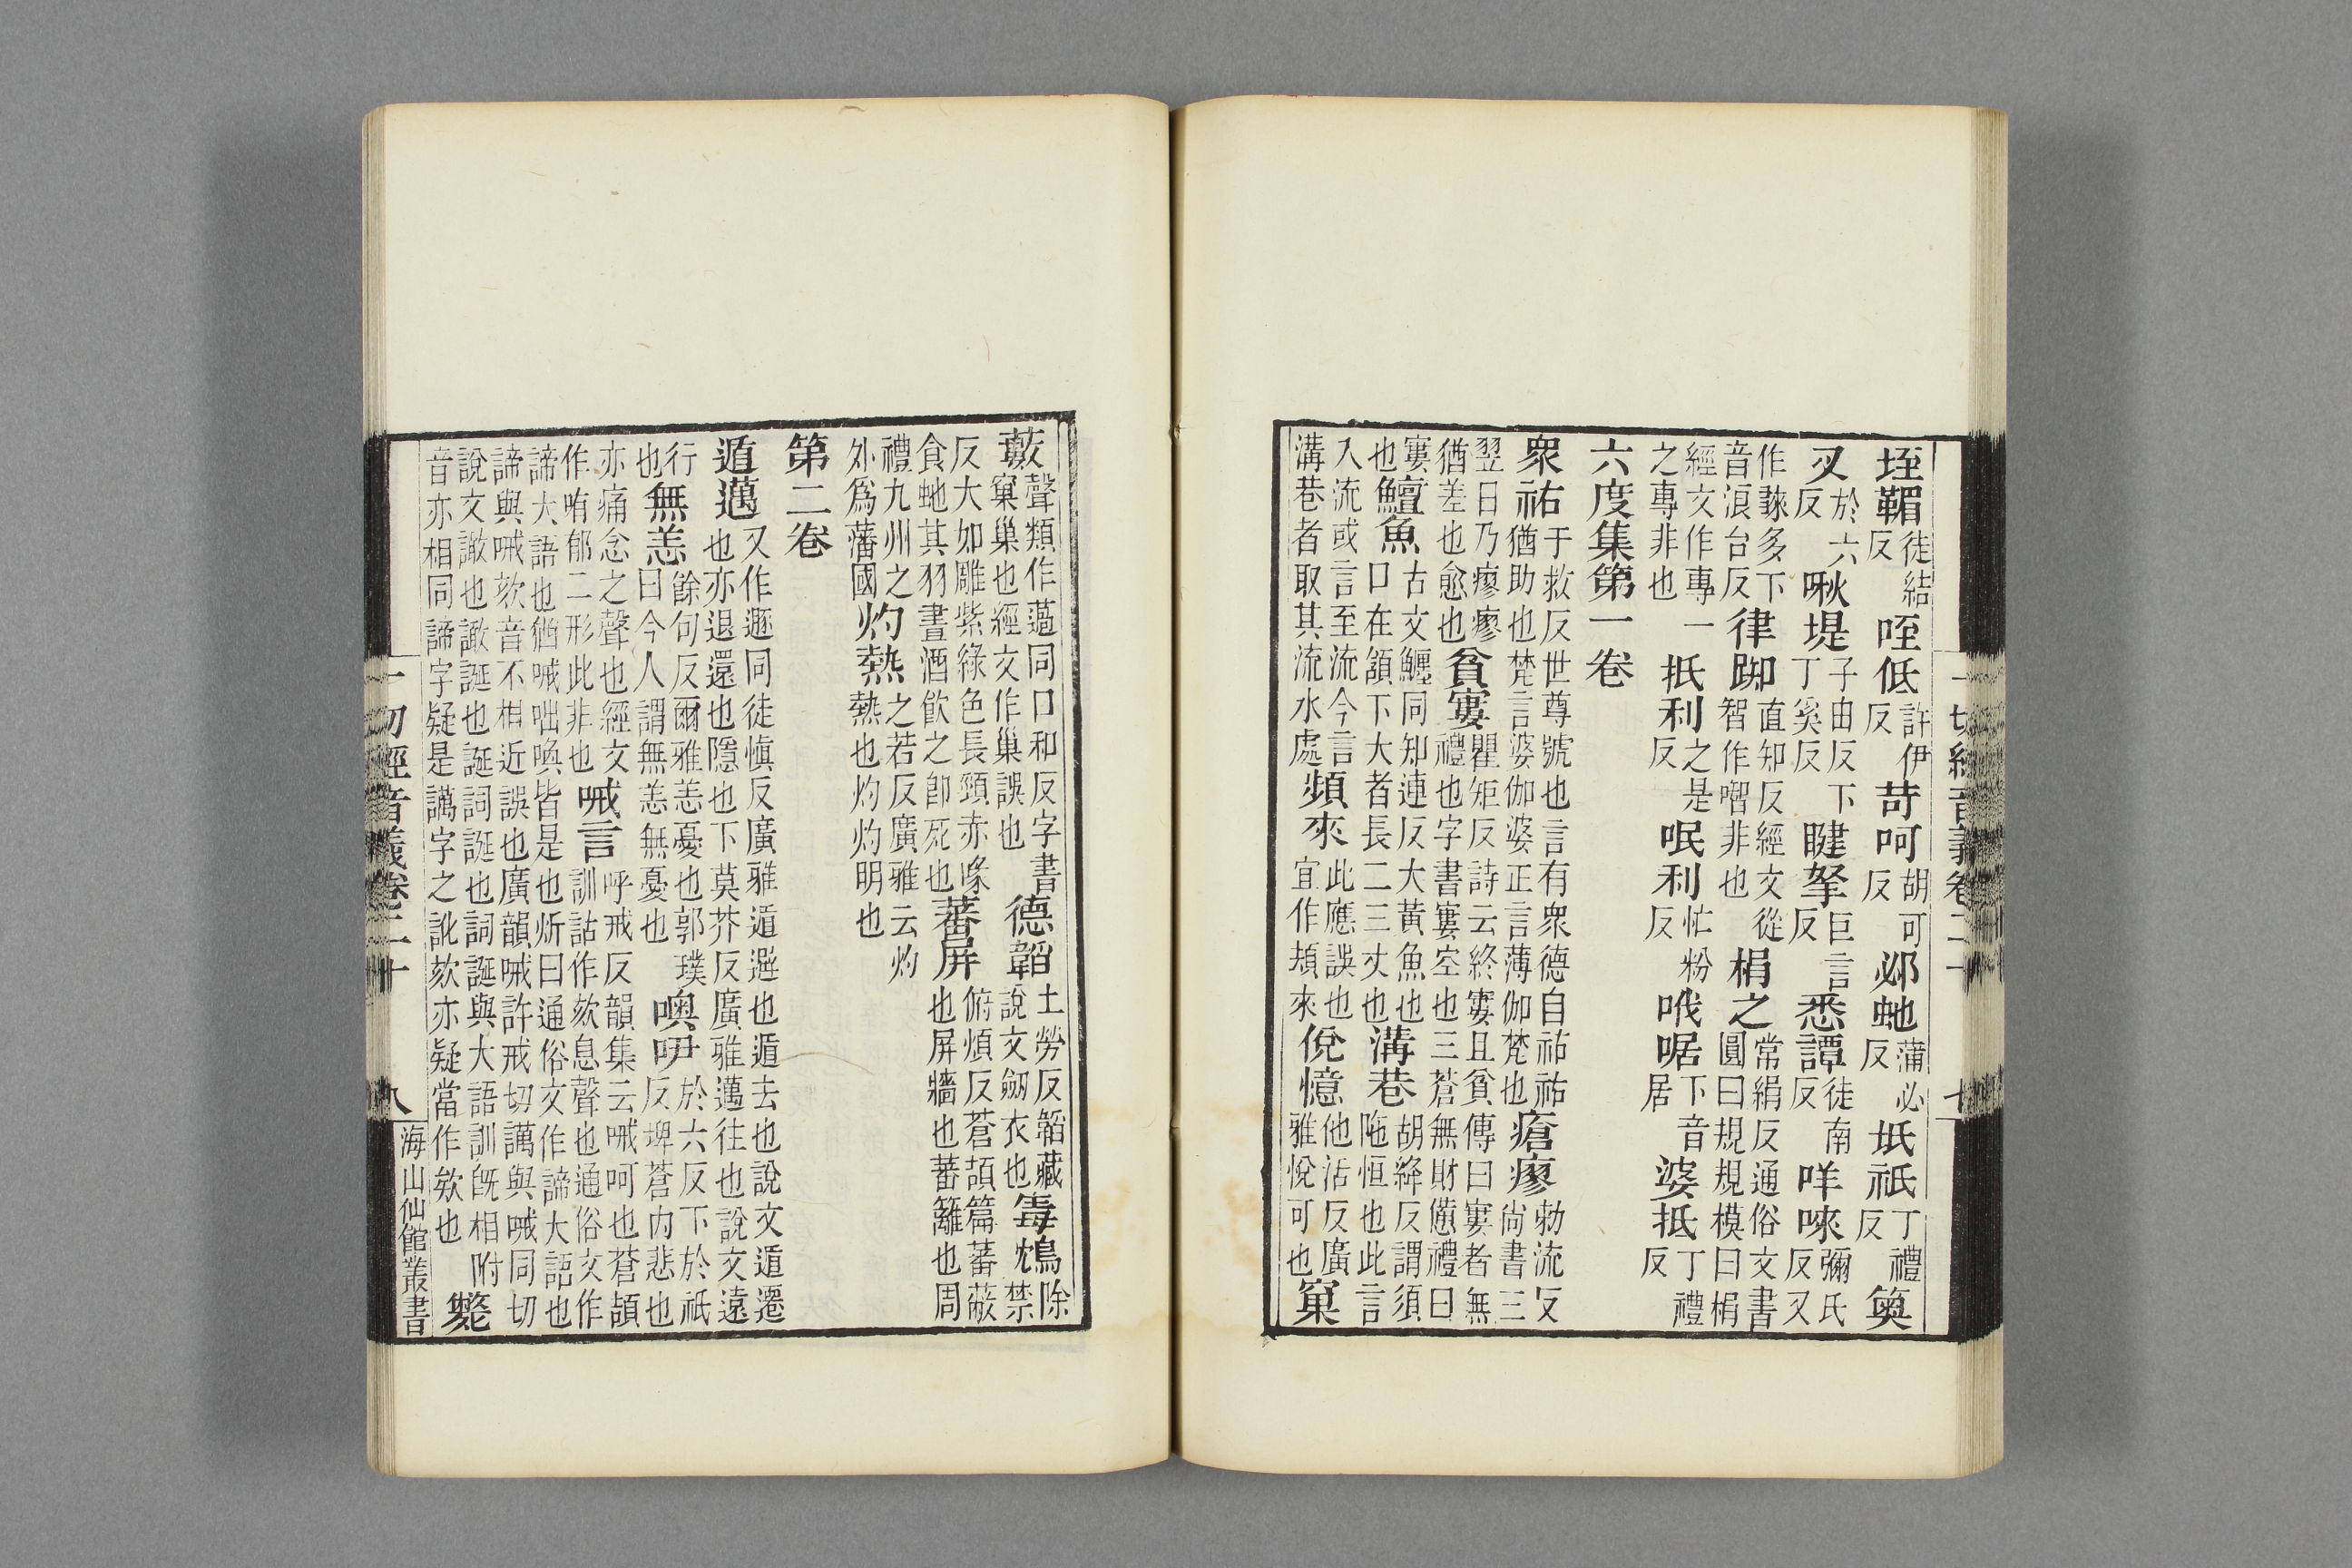 垤鞙徒結反咥低許伊反苛呵胡可反邲虵蒲必反坻祇丁禮反奠
叉於六反啾堤子由反下丁奚反睷拏巨言反悉譚徒南反咩唻彌氏反又
作䟆多下音浪台反律踋直知反經文從智作㗧非也梋之常絹反通俗文書圓曰規規模曰梋
經文作專一之專非也抵利之是反呡利忙粉反哦啹下音居婆抵丁禮反
六度集第一卷
衆祐于救反世尊號也言有衆德自祐祐猶助也梵言婆伽婆正言薄伽梵也瘡瘳勑流反尚書三
翌日乃瘳瘳猶差也愈也貧寠瞿矩反詩云終寠且貧傳曰寠者無禮也字書寠空也三蒼無財備禮曰
寠也鱣魚古文鱣同知連反大黃魚也口在頷下大者長二三丈也溝巷胡絳反謂須陁恒也此言
入流或言至流今言溝巷者取其流水處頻來此應誤也宜作頻來侻憶他活反廣雅悅可也窠
藪聲類作薖同口和反字書窠巢也經文作巢誤也德韜土勞反韜藏說文劒衣也毒鴆除禁
反大如雕紫綠色長頸赤喙食虵其羽畫酒飮之卽死也蕃屏俯煩反蒼頡篇蕃蔽也屏牆也蕃籬也周
禮九州之外爲藩國灼熱之若反廣雅云灼熱也灼灼明也
第二卷
遁邁又作遯同徒愼反廣雅遁避也遁去也說文遁遷也亦退還也隱也下莫芥反廣雅邁往也說文遠
行也無恙餘句反爾雅恙憂也郭璞曰今人謂無恙無憂也噢吚於六反下於祇反埤蒼內悲也
亦痛念之聲也經文作哊郁二形此非也喊言呼戒反韻集云喊呵也蒼頡訓詁作欬息聲也通俗文作
諦大語也猶喊咄喚皆是也炘曰通俗文作諦大語也諦與喊欬音不相近誤也廣韻喊許戒切講與喊同切
說文譀也譀誕也誕詞誕也詞誕與大語訓旣相附音亦相同諦字疑是講字之訛欬亦疑當作欸也甏
一切經音義卷二十
八
海山仙館叢書